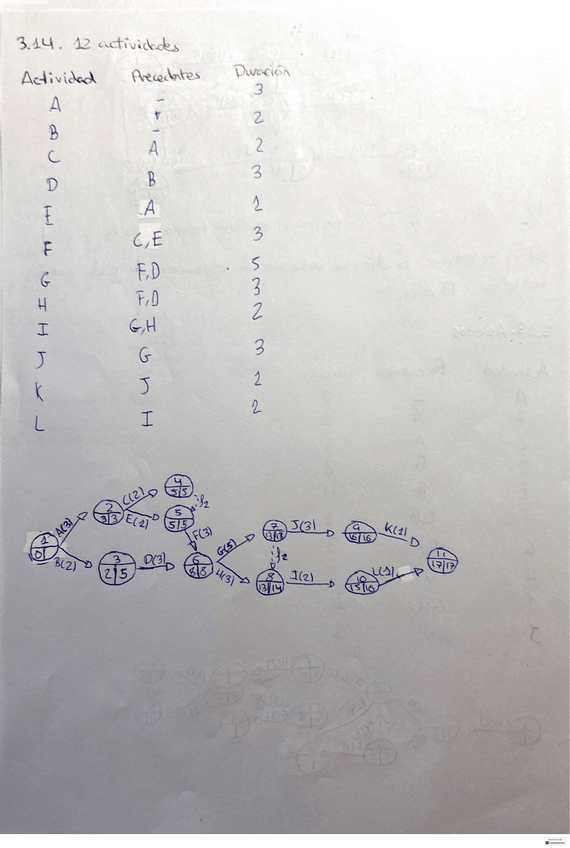 3.14. 12 actividades
Actividad Precedentes Duración
A - 3
B - 2
C A 2
D B 3
E A 1
F C,E 3
G F,D 5
H F,D 3
I G,H 2
J G 3
K J 1
L I 2
1
0
A(3)
B(2)
2
3|3
C(2)
E(1)
3
2|5
D(3)
4
5|5
5
5|5
F(3)
6
8|8
G(5)
H(3)
7
13|13
J(3)
8
13|14
I(2)
9
16|16
K(1)
10
15|16
L(1)
11
17|17